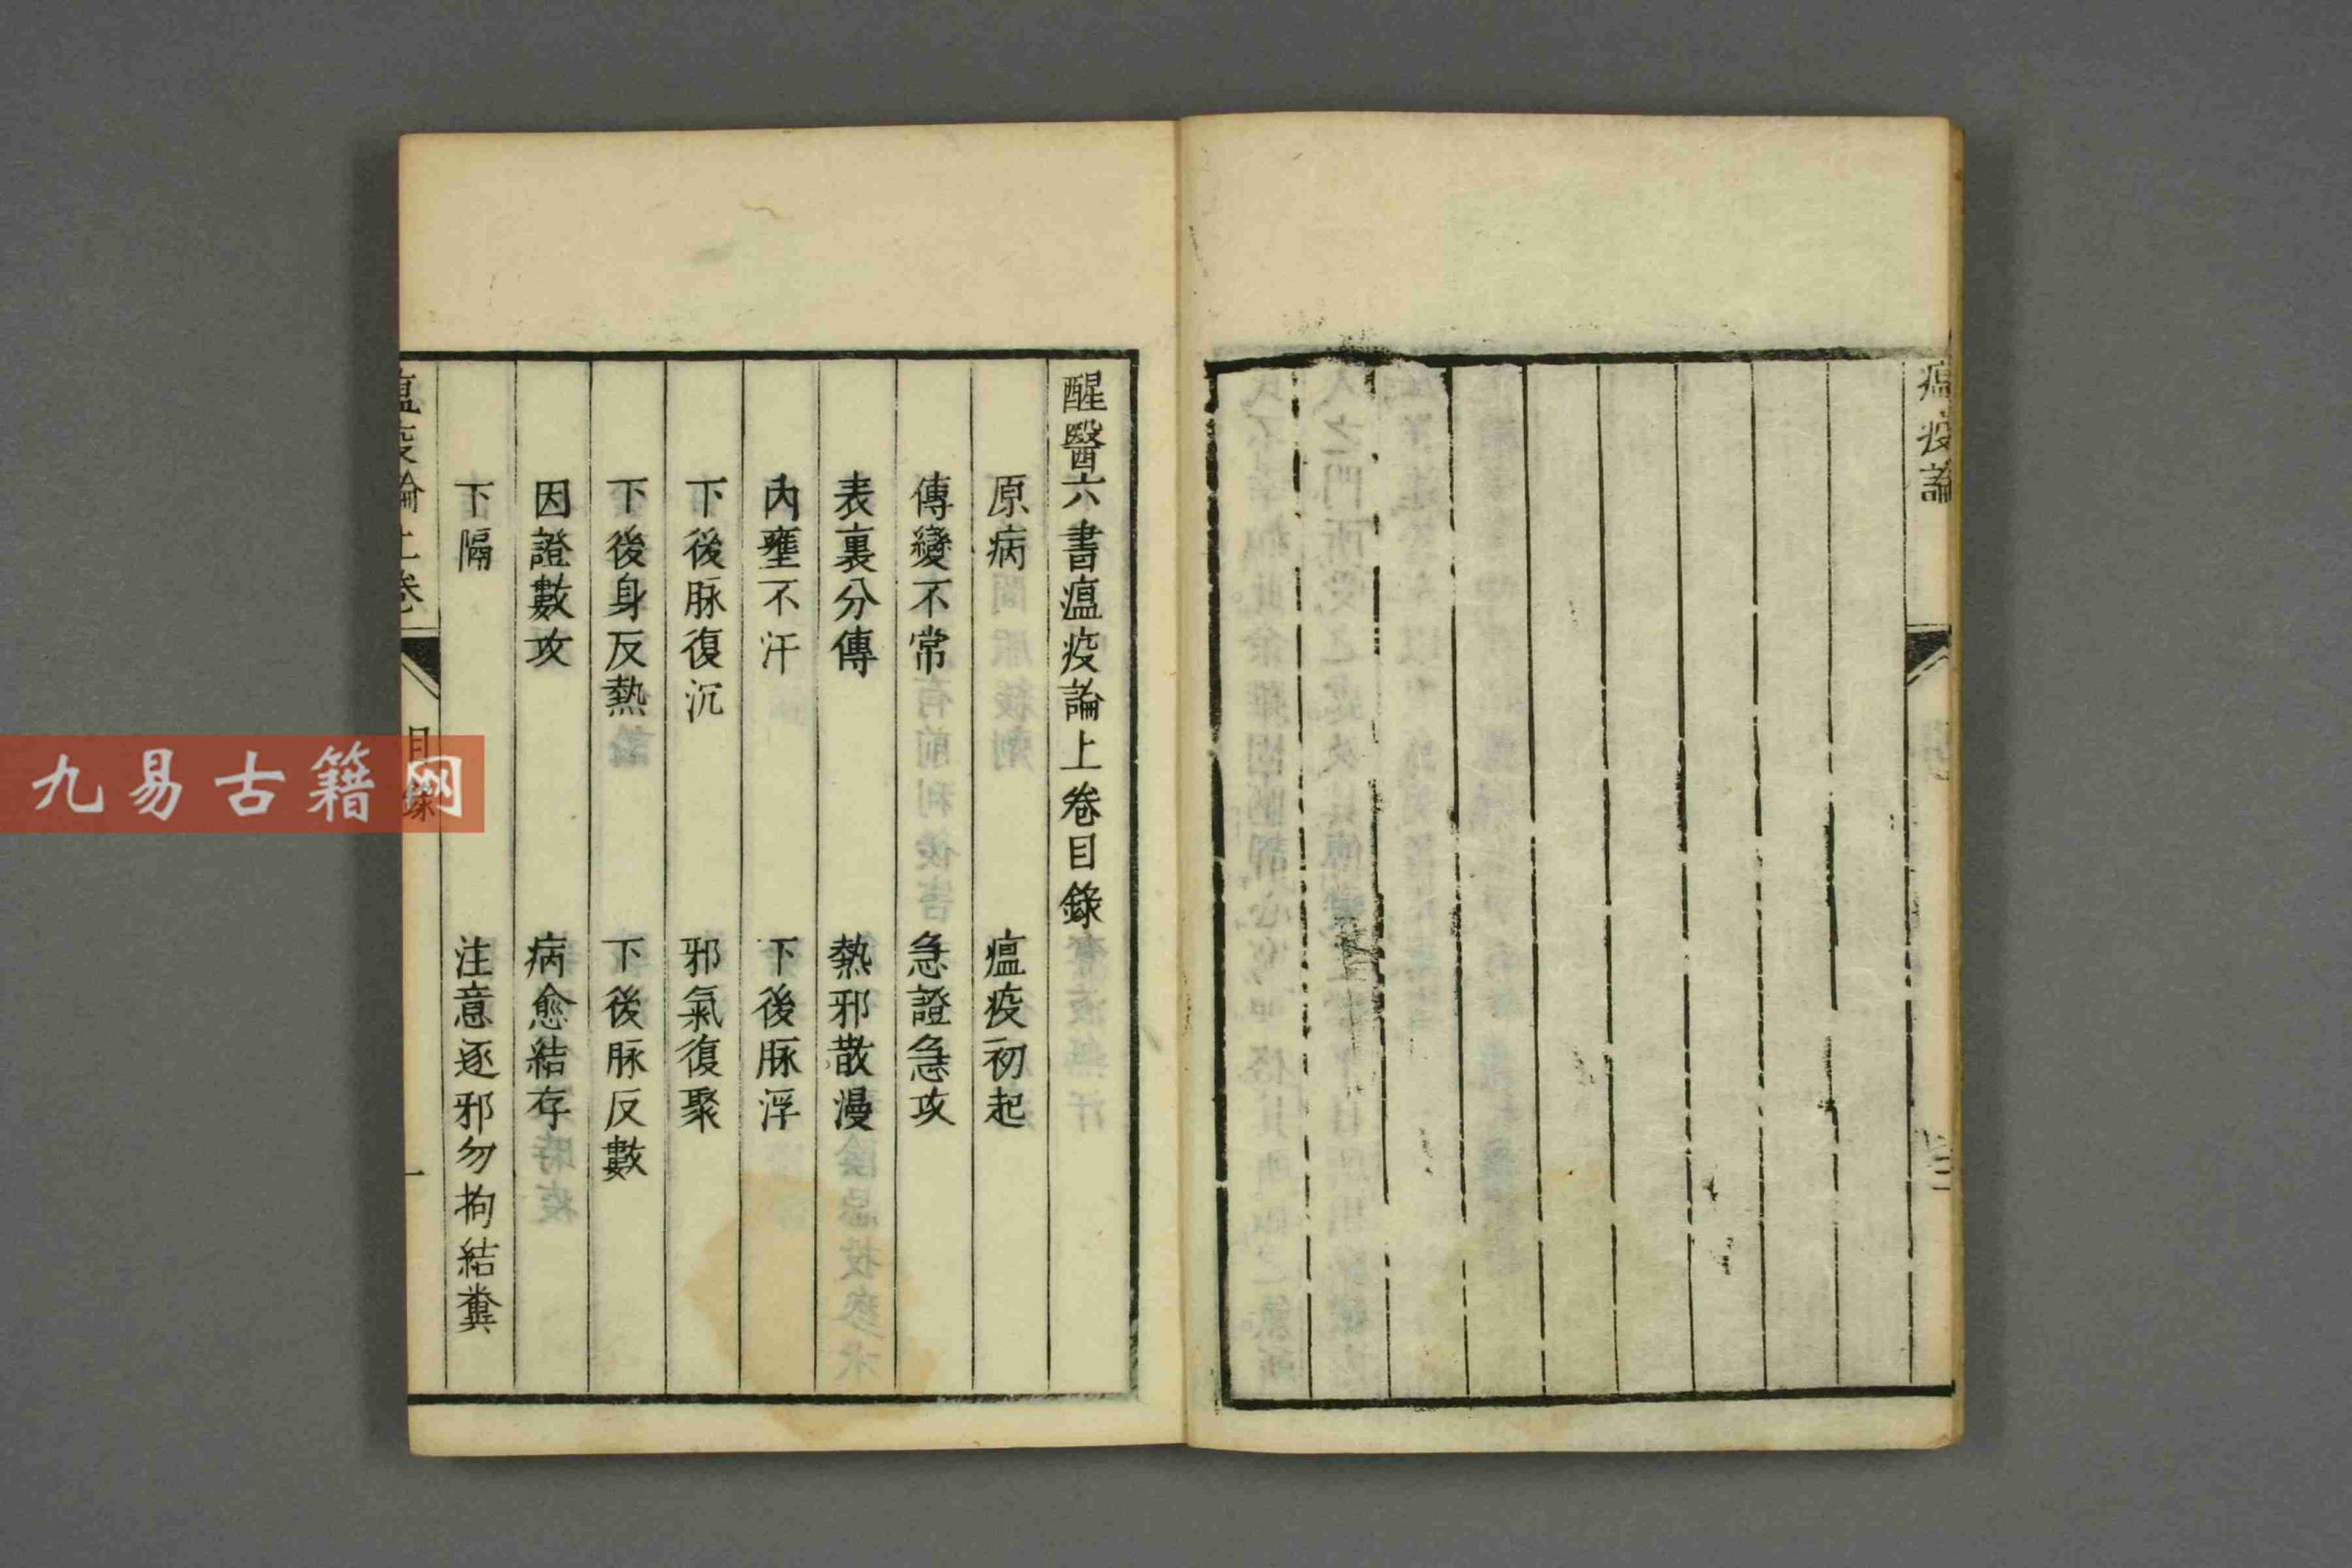 瘟疫論
醒醫六書瘟疫論上卷目錄
原病　瘟疫初起
傳變不常　急證急攻
表裏分傳　熱邪散漫
內壅不汗　下後脉浮
下後脉復沉　邪氣復聚
下後身反熱　下後脉反數
因證數攻　病愈結存
下隔　注意逐邪勿拘結糞
瘟疫論上卷　目錄　一
九易古籍网